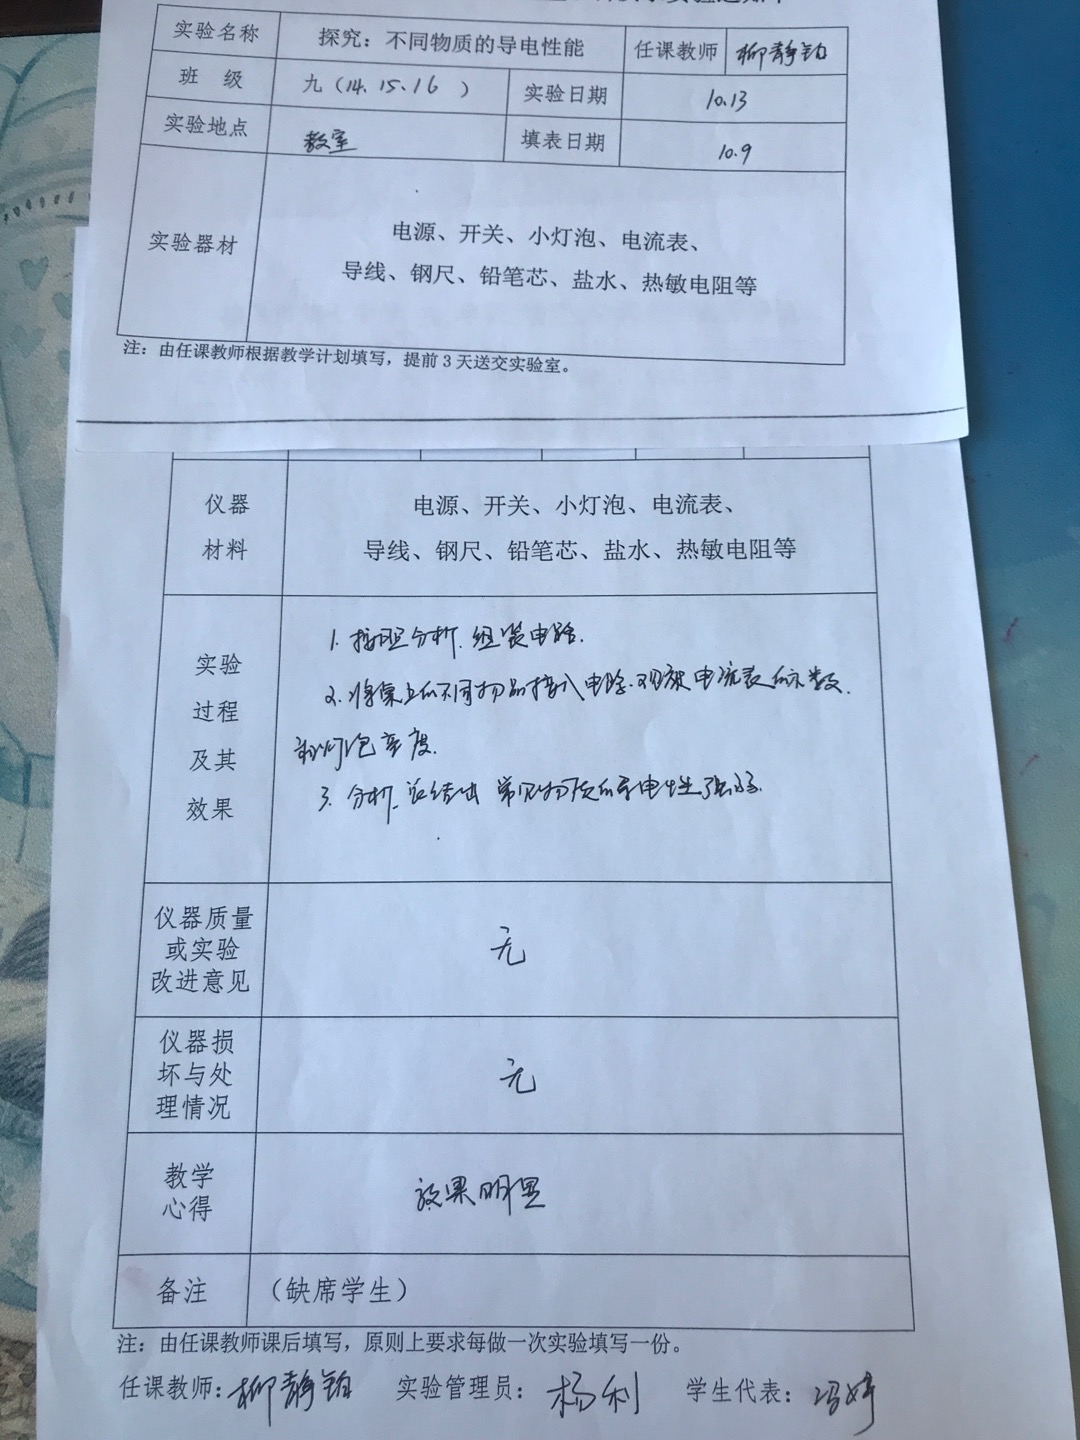 实验名称 探究：不同物质的导电性能 任课教师 柳静
班 级 九（14、15、16 ） 实验日期 10.13
实验地点 教室 填表日期 10.9
实验器材 电源、开关、小灯泡、电流表、
导线、钢尺、铅笔芯、盐水、热敏电阻等
注：由任课教师根据教学计划填写，提前3天送交实验室。
仪器材料 电源、开关、小灯泡、电流表、
导线、钢尺、铅笔芯、盐水、热敏电阻等
实验过程及其效果
1. 按图分析、组装电路.
2. 将桌上的不同物品接入电路.观察电流表的示数.
和灯泡亮度.
3. 分析、总结出 常见物质的导电性强弱.
仪器质量或实验改进意见 无
仪器损坏与处理情况 无
教学心得 效果明显
备注 （缺席学生）
注：由任课教师课后填写，原则上要求每做一次实验填写一份。
任课教师：柳静 实验管理员：杨利 学生代表：冯婷